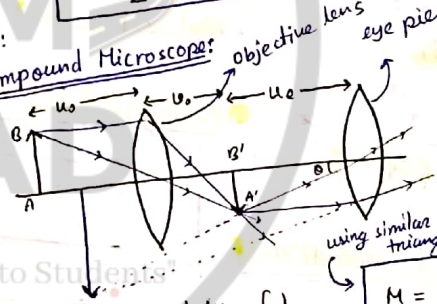 mpound Microscope:
objective lens
eye pie
u₀
v₀
ue
B
A
B'
A'
θ
using similar
triang
M =
to Students"